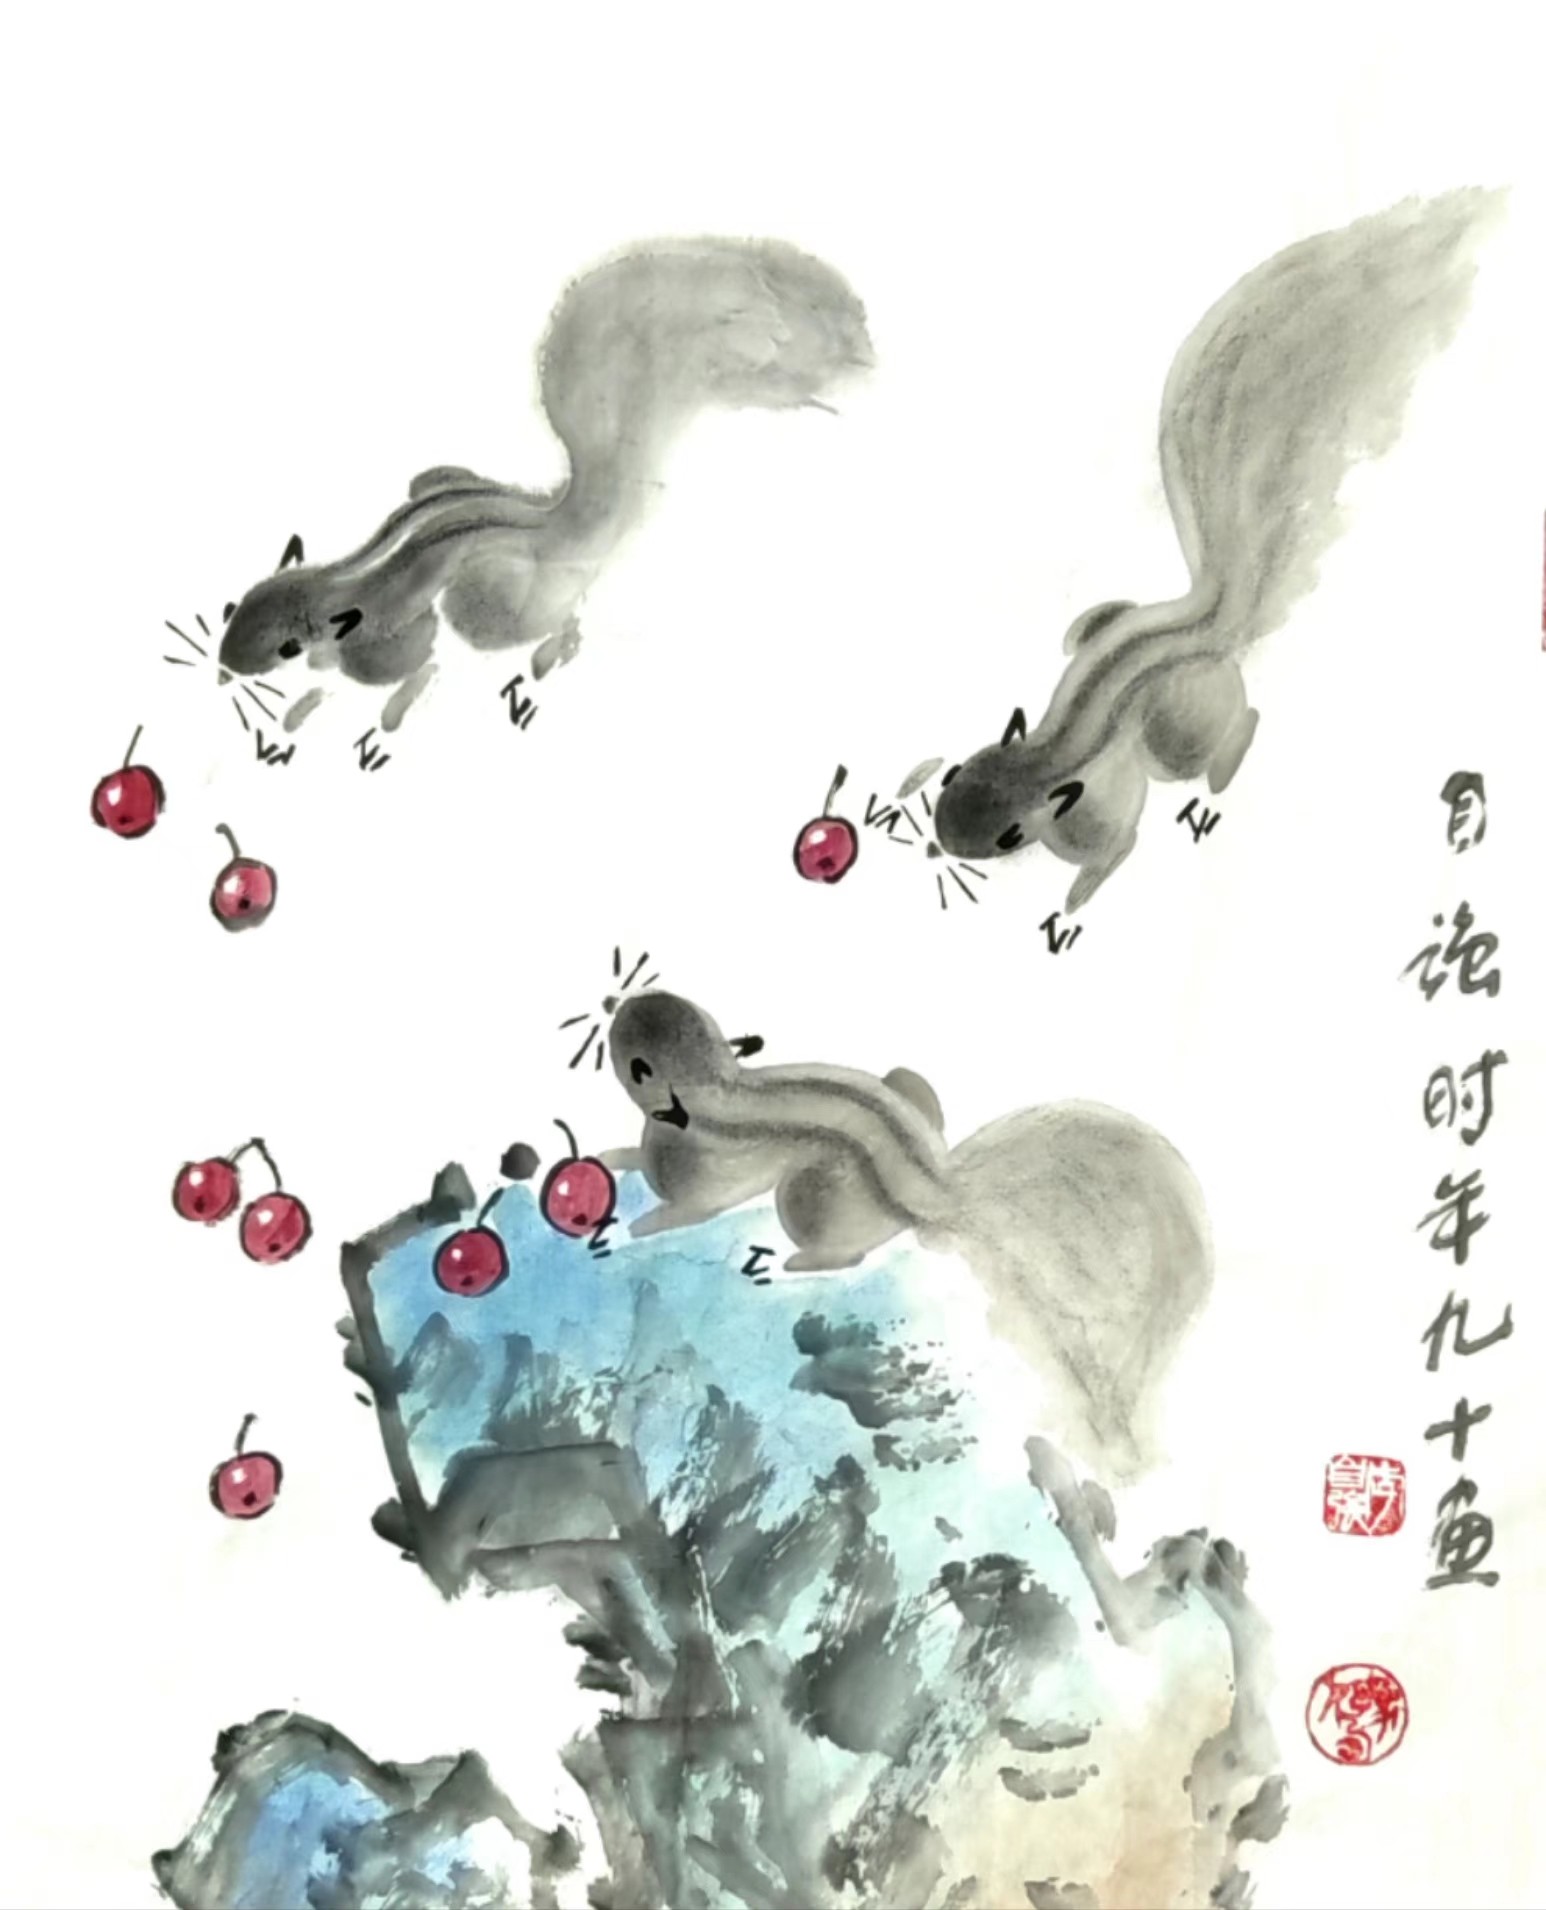 自强时年九十画